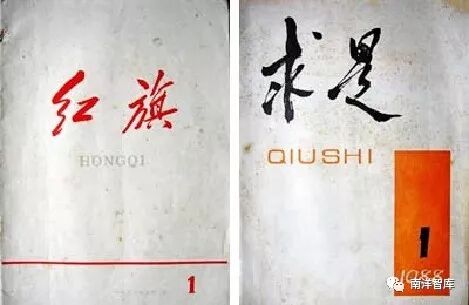 红旗
HONGQI
1
求是
QIUSHI
1
1988
南洋智库